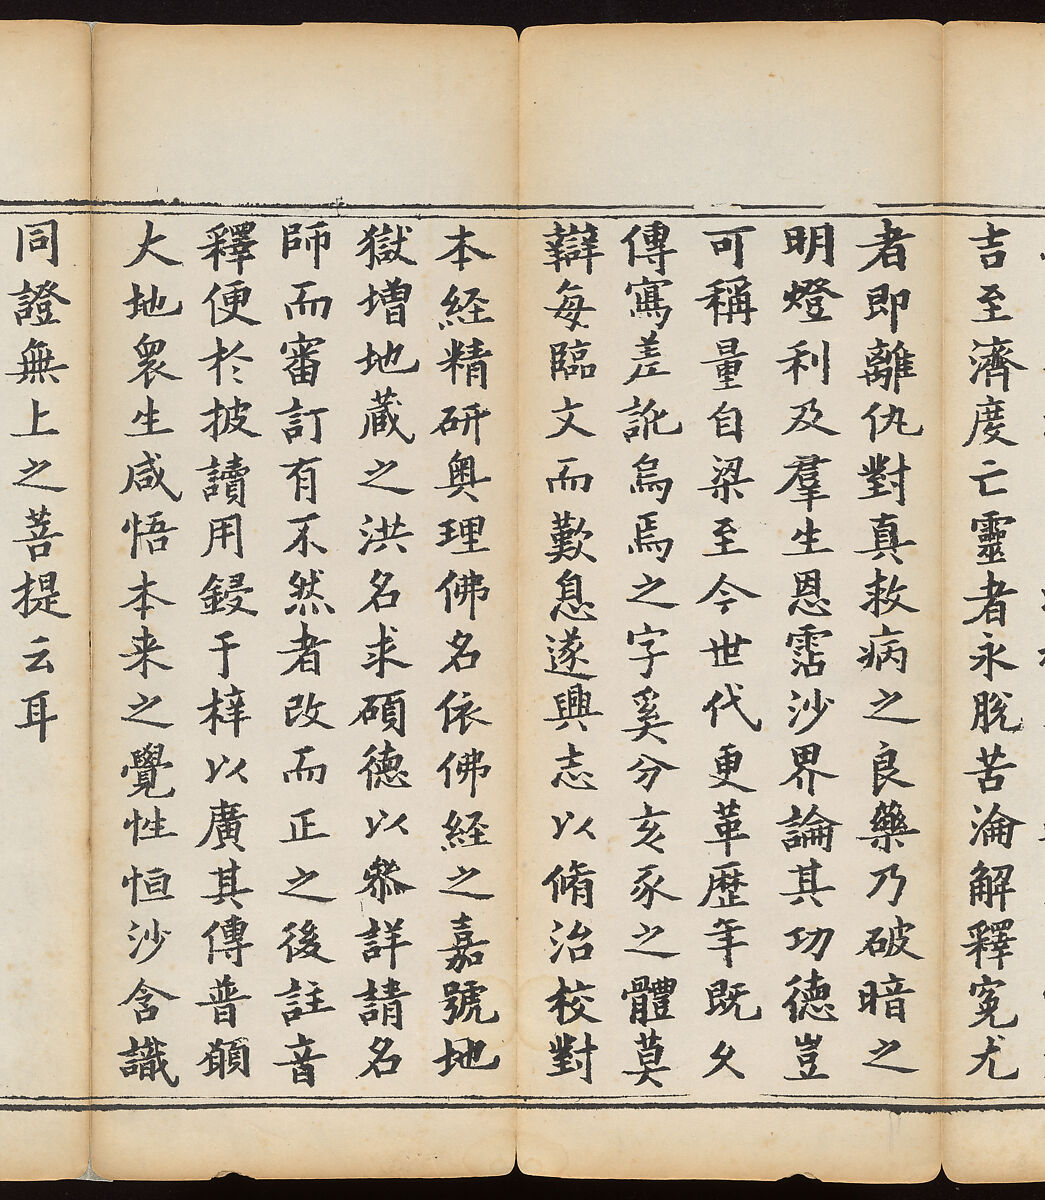 吉至濟度亡靈者永脫苦淪解釋冤尤
者即離仇對真救病之良藥乃破暗之
明燈利及羣生恩霑沙界論其功德豈
可稱量自梁至今世代更革歷年既久
傳寫差訛烏焉之字奚分亥豕之體莫
辯每臨文而歎息遂興志以脩治校對
本経精研奥理佛名依佛経之嘉號地
獄増地蔵之洪名求碩德以叅詳請名
師而審訂有不然者改而正之後註音
釋便於披讀用鋟于梓以廣其傳普願
大地衆生咸悟本来之覺性恒沙含識
同證無上之菩提云耳